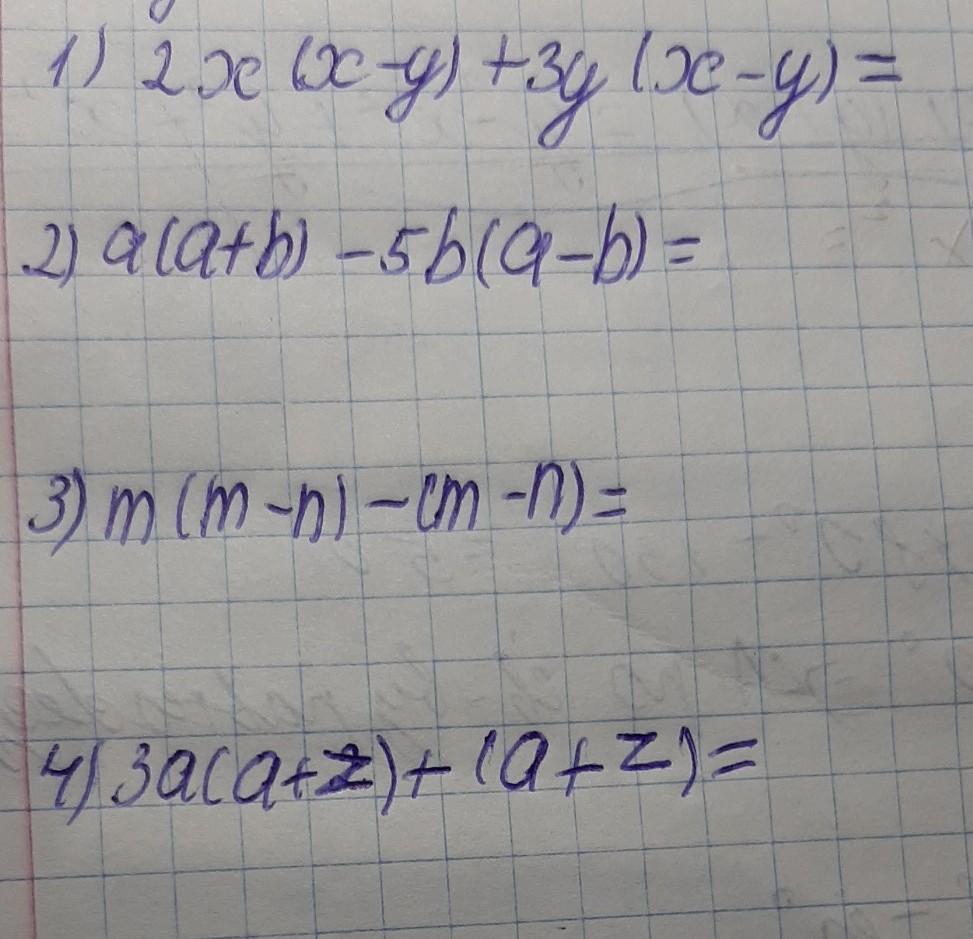 1) 2x (x-y) +3y (x-y) =
2) a(a+b) -5b(a-b) =
3) m (m-n) -(m-n) =
4) 3a(a+z) + (a+z) =